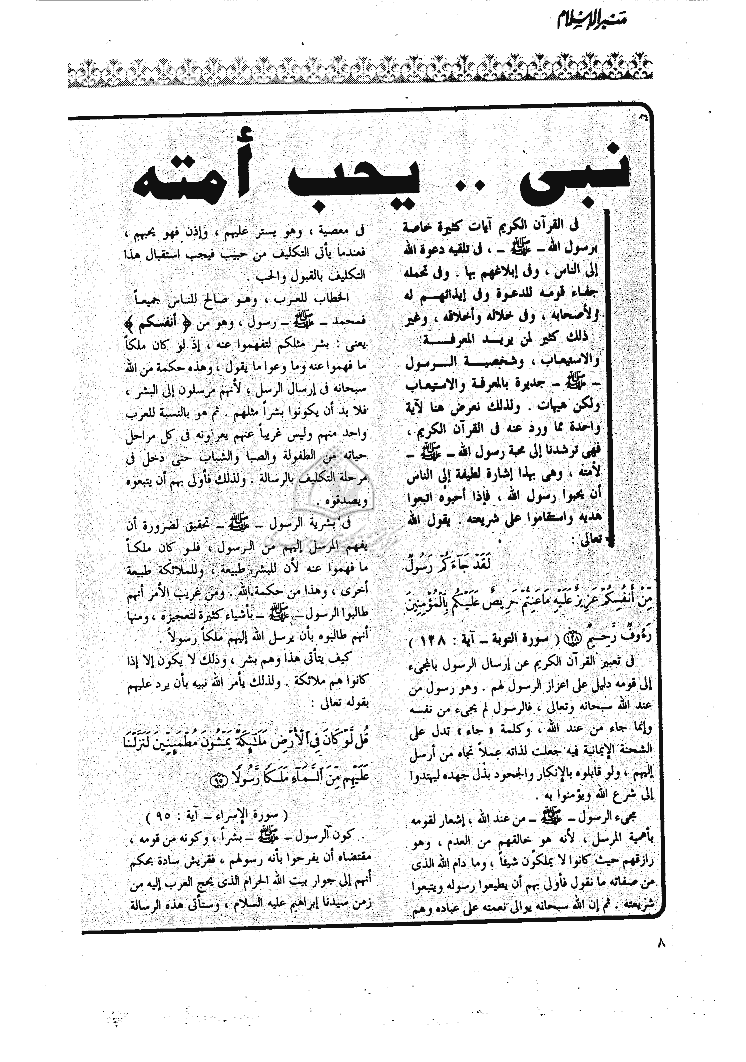 منبر الإسلام
نبى .. يحب أمته
فى القرآن الكريم آيات كثيرة خاصة
برسول الله ـ ﷺ ـ ، فى تلقيه دعوة الله
إلى الناس ، وفى إبلاغهم بها . وفى تحمله
جفاء قومه للدعوة وفى إيذائهم له
ولأصحابه ، وفى خلاله وأخلاقه ، وغير
ذلك كثير لمن يريد المعرفة
والاستيعاب ، وشخصية الرسول
ـ ﷺ ـ جديرة بالمعرفة والاستيعاب
ولكن هيهات . ولذلك نعرض هنا لآية
واحدة مما ورد عنه فى القرآن الكريم ،
فهى ترشدنا إلى محبة رسول الله ـ ﷺ ـ
لأمته ، وهى بهذا إشارة لطيفة إلى الناس
أن يحبوا رسول الله ، فإذا أحبوه اتبعوا
هديه واستقاموا على شريعته . يقول الله
تعالى :
لَقَدْ جَآءَكُمْ رَسُولٌ
مِّنْ أَنفُسِكُمْ عَزِيزٌ عَلَيْهِ مَاعَنِتُّمْ حَرِيصٌ عَلَيْكُم بِالْمُؤْمِنِينَ
رَءُوفٌ رَّحِيمٌ ﴿١٢٨﴾ ( سورة التوبة ـ آية : ١٢٨ )
فى تعبير القرآن الكريم عن إرسال الرسول بالمجىء
إلى قومه دليل على اعزاز الرسول لهم . وهو رسول من
عند الله سبحانه وتعالى ، فالرسول لم يجىء من نفسه
وإنما جاء من عند الله ، وكلمة « جاء » تدل على
الشحنة الإيمانية فيه جعلت لذاته عملاً تجاه من أرسل
إليهم ، ولو قابلوه بالإنكار والجحود بذل جهده ليهتدوا
إلى شرع الله ويؤمنوا به .
مجىء الرسول ـ ﷺ ـ من عند الله ؛ إشعار لقومه
بأهمية المرسل ، لأنه هو خالقهم من العدم ، وهو
رازقهم حيث كانوا لا يملكون شيئاً ، وما دام الله الذى
من صفاته ما نقول فأولى بهم أن يطيعوا رسوله ويتبعوا
شريعته . ثم إن الله سبحانه يوالى نعمته على عباده وهم
فى معصية ، وهو يستر عليهم ، وإذن فهو يحبهم ،
فعندما يأتى التكليف من حبيب فيجب استقبال هذا
التكليف بالقبول والحب .
الخطاب للعرب ، وهو صالح للناس جميعاً
فمحمد ـ ﷺ ـ رسول ، وهو من ﴿ أنفسكم ﴾
يعنى : بشر مثلكم لتفهموا عنه ، إذ لو كان ملكاً
ما فهموا عنه وما وعوا ما يقول ، وهذه حكمة من الله
سبحانه فى إرسال الرسل ؛ لأنهم مرسلون إلى البشر ،
فلا بد أن يكونوا بشراً مثلهم . ثم هو بالنسبة للعرب
واحد منهم وليس غريباً عنهم يعرفونه فى كل مراحل
حياته من الطفولة والصبا والشباب حتى دخل فى
مرحلة التكليف بالرسالة . ولذلك فأولى بهم أن يتبعوه
ويصدقوه .
فى بشرية الرسول ـ ﷺ ـ تحقيق لضرورة أن
يفهم المرسل إليهم من الرسول ، فلو كان ملكاً
ما فهموا عنه لأن للبشر طبيعة ، وللملائكة طبيعة
أخرى ، وهذا من حكمة الله . ومن غريب الأمر أنهم
طالبوا الرسول ـ ﷺ ـ بأشياء كثيرة لتعجيزه ، ومنها
أنهم طالبوه بأن يرسل الله إليهم ملكاً رسولاً
كيف يتأتى هذا وهم بشر ، وذلك لا يكون إلا إذا
كانوا هم ملائكة . ولذلك يأمر الله نبيه بأن يرد عليهم
بقوله تعالى :
قُل لَّوْ كَانَ فِى الْأَرْضِ مَلَٰٓئِكَةٌ يَمْشُونَ مُطْمَئِنِّينَ لَنَزَّلْنَا
عَلَيْهِم مِّنَ السَّمَآءِ مَلَكًا رَّسُولًا ﴿٩٥﴾
( سورة الإسراء ـ آية : ٩٥ )
كون الرسول ـ ﷺ ـ بشراً ، وكونه من قومه ،
مقتضاه أن يفرحوا بأنه رسولهم ، فقريش سادة بحكم
أنهم إلى جوار بيت الله الحرام الذى يحج العرب إليه من
زمن سيدنا إبراهيم عليه السلام ، وستأتى هذه الرسالة
٨